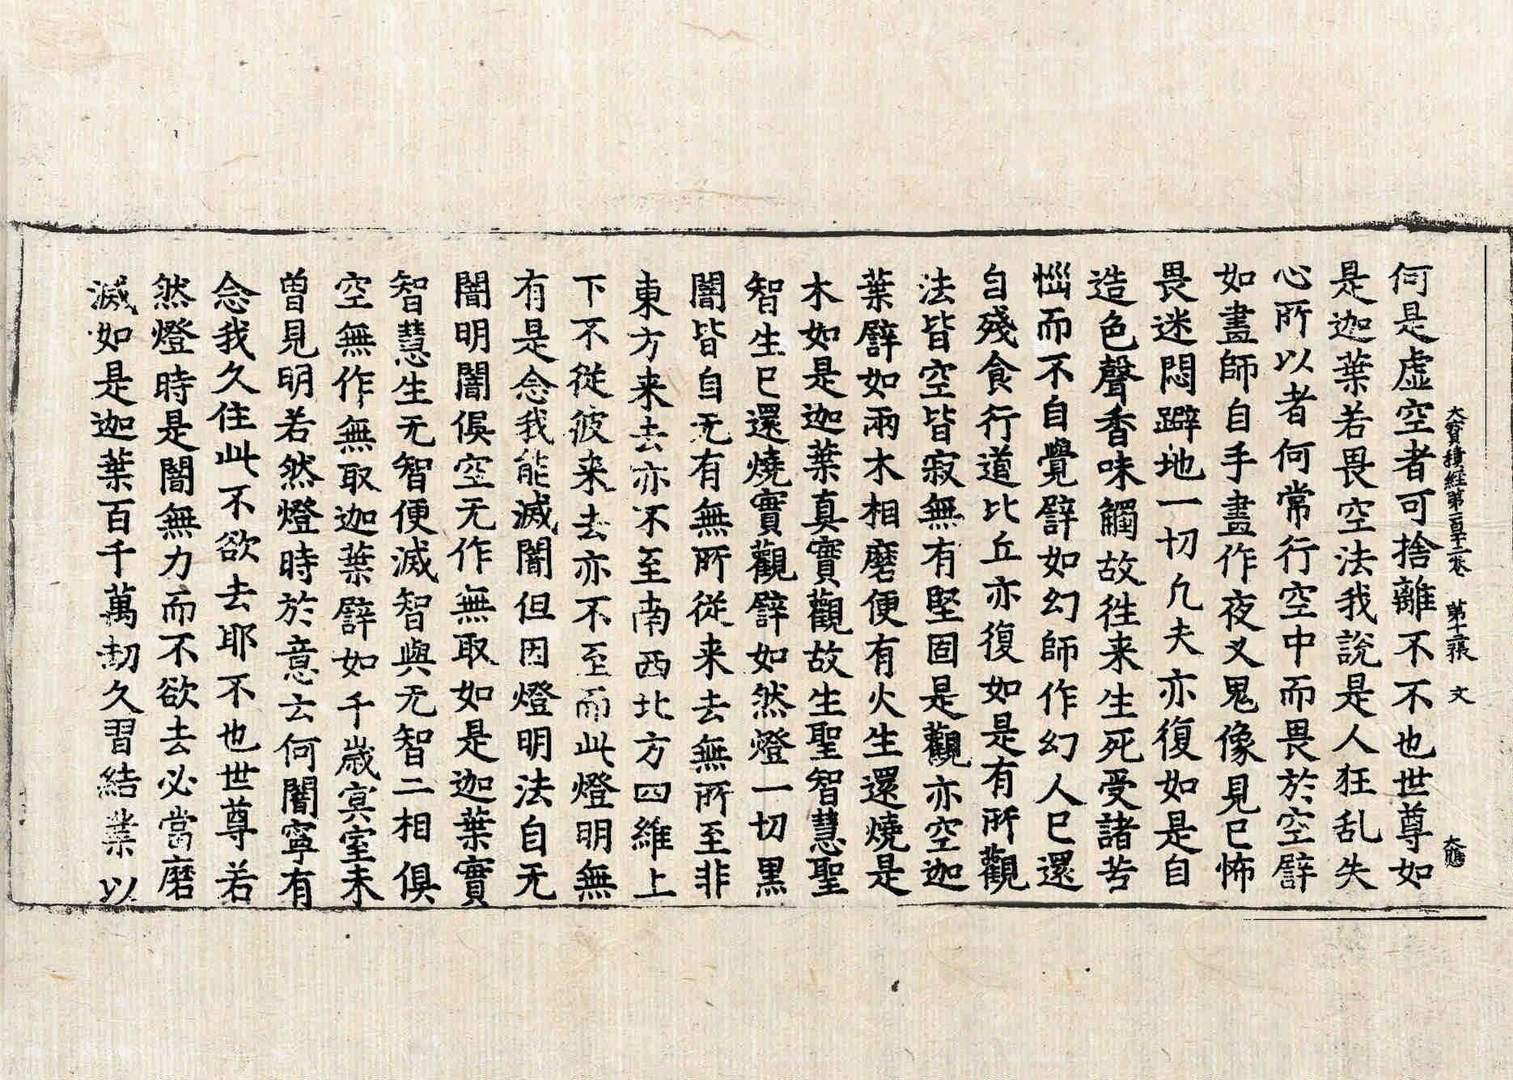 大寶積經第一百十二卷 第 張 文
何是虛空者可捨離不不也世尊如
是迦葉若畏空法我說是人狂乱失
心所以者何常行空中而畏於空譬
如畫師自手畫作夜叉鬼像見已怖
畏迷悶躃地一切凡夫亦復如是自
造色聲香味觸故徃来生死受諸苦
惱而不自覺譬如幻師作幻人已還
自殘食行道比丘亦復如是有所觀
法皆空皆寂無有堅固是觀亦空迦
葉譬如兩木相磨便有火生還燒是
木如是迦葉真實觀故生聖智慧聖
智生已還燒實觀譬如然燈一切黑
闇皆自无有無所従来去無所至非
東方来去亦不至南西北方四維上
下不從彼来去亦不至而此燈明無
有是念我能滅闇但因燈明法自无
闇明闇俱空无作無取如是迦葉實
智慧生无智便滅智與无智二相俱
空無作無取迦葉譬如千歲㝠室未
曾見明若然燈時於意云何闇寧有
念我久住此不欲去耶不也世尊若
然燈時是闇無力而不欲去必當磨
滅如是迦葉百千萬劫久習結業以